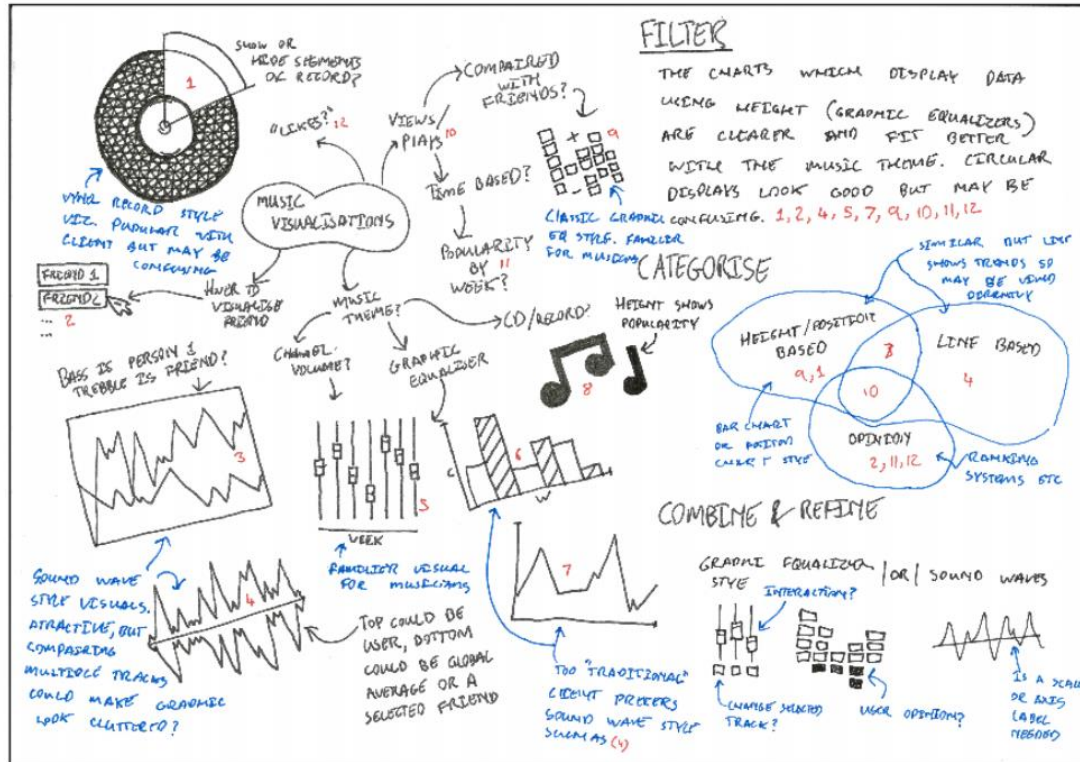 SHOW OR
HIDE SEGMENTS
OF RECORD?
1
VYNAL RECORD STYLE
VIZ. POPULAR WITH
CLIENT BUT MAY BE
CONFUSING
"LIKES?" 12
VIEWS/
PLAYS 10
COMPAIRED
WITH
FRIENDS?
9
+
-
CLASSIC GRAPHIC
EQ STYLE. FAMILIER
FOR MUSICIANS
TIME BASED?
POPULARITY
BY 11
WEEK?
MUSIC
VISUALISATIONS
FRIEND 1
FRIEND 2
...
...
2
HOVER TO
VISUALISE
FRIEND
MUSIC
THEME?
CD/RECORD?
CHANNEL
VOLUME?
GRAPHIC
EQUALISER
HEIGHT SHOWS
POPULARITY
8
BASS IS PERSON 1
TREBBLE IS FRIEND?
3
5
WEEK
FAMILIER VISUAL
FOR MUSICIANS
6
C
W
7
SOUND WAVE
STYLE VISUALS.
ATRACTIVE, BUT
COMPAIRING
MULTIPLE TRACKS
COULD MAKE GRAPHIC
LOOK CLUTTERED?
4
TOP COULD BE
USER, BOTTOM
COULD BE GLOBAL
AVERAGE OR A
SELECTED FRIEND
TOO "TRADITIONAL"
CLIENT PREFERS
SOUND WAVE STYLE
SUCH AS (4)
FILTER
THE CHARTS WHICH DISPLAY DATA
USING HEIGHT (GRAPHIC EQUALIZERS)
ARE CLEARER AND FIT BETTER
WITH THE MUSIC THEME. CIRCULAR
DISPLAYS LOOK GOOD BUT MAY BE
CONFUSING. 1, 2, 4, 5, 7, 9, 10, 11, 12
CATEGORISE
SIMILAR BUT LINE
SHOWS TRENDS SO
MAY BE VIEWD
HEIGHT/POSITION
BASED
9, 1
LINE BASED
4
10
OPINION
2, 11, 12
BAR CHART
OR POSITION
CHART STYLE
RANKING
SYSTEMS ETC
COMBINE & REFINE
GRAPHIC EQUALIZER
STYLE
INTERACTION?
/OR/ SOUND WAVES
CHANGE SELECTED
TRACK?
USER OPINION?
IS A SCALE
OR AXIS
LABEL
NEEDED